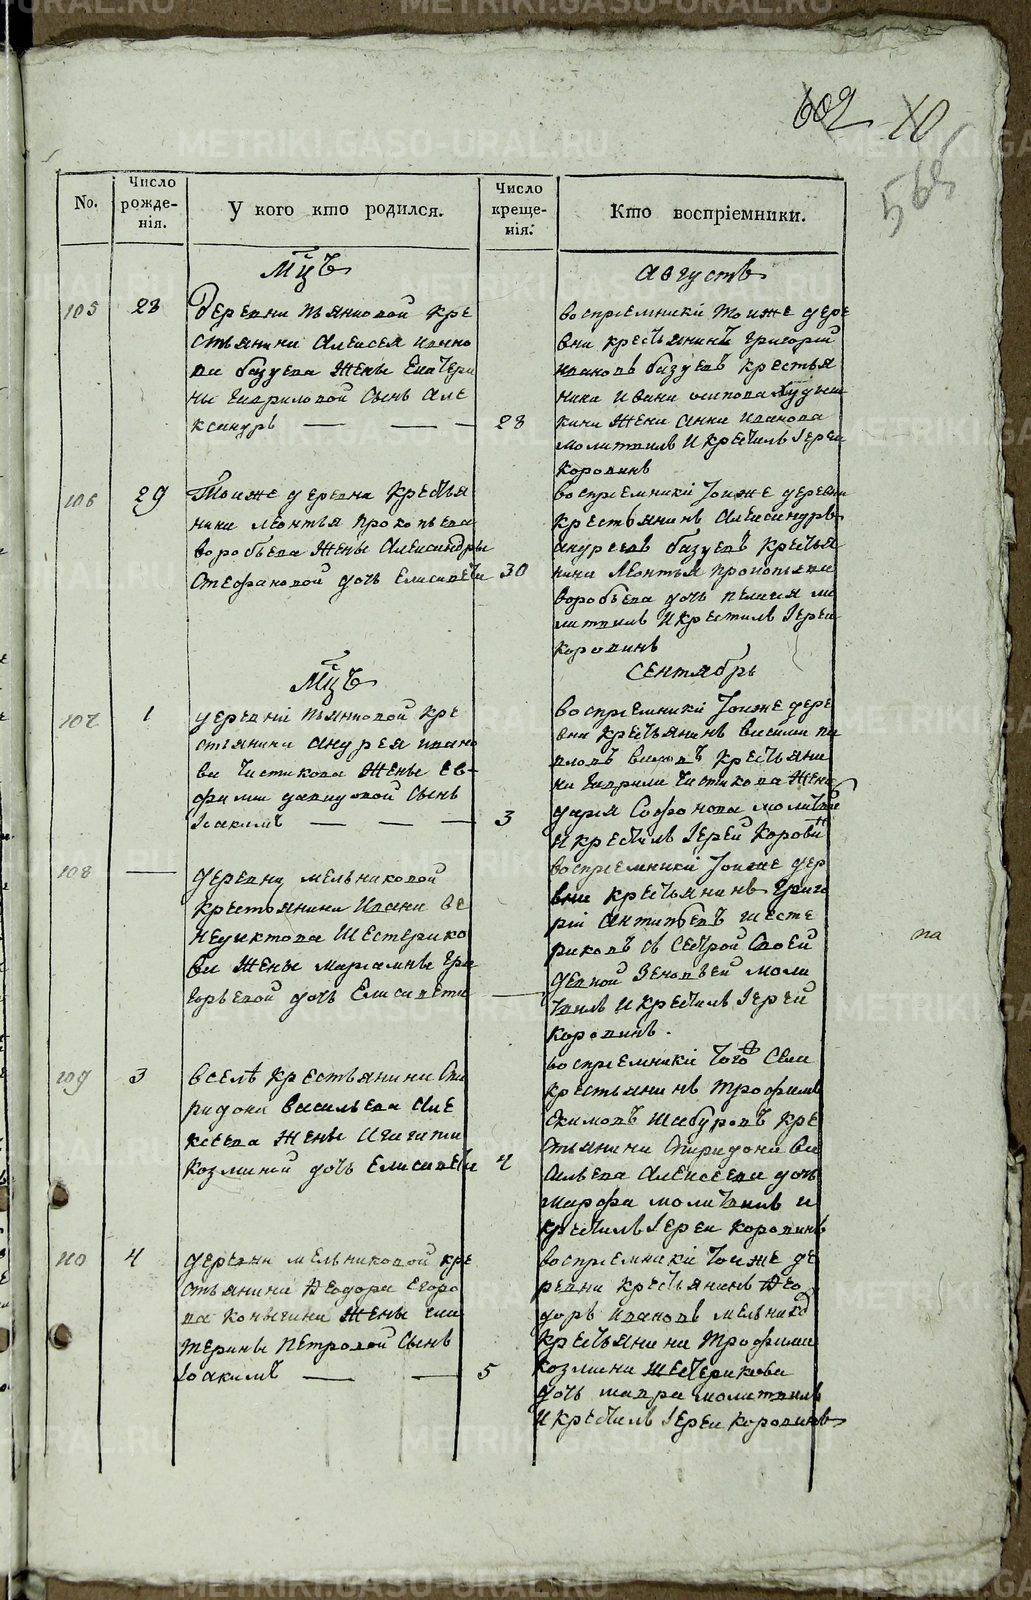 602 10
565
No.
Число рожденія.
У кого кто родился.
Число крещенія.
Кто воспріемники.
Мцъ
Августъ
105
28
деревни пьянковой кре
стьянина Алексея ивано
ва базуева жены Екатери
ны гавриловой сынъ Але
ксандръ
28
воспріемники тоиже дере
вни крестьянинъ григорій
ивановъ базуевъ крестья
нина ивана осипова
жена анна иванова
молитвилъ и крестилъ Іереи
коровинъ
106
29
Тоиже деревни крестья
нина леонтья прокопьева
воробьева жены александры
Стефановой дочь елисавета
30
воспріемники тоиже деревни
крестьянинъ Александръ
андреевъ базуевъ крестья
нина леонтья прокопьева
воробьева дочь пелагея мо
литвилъ и крестилъ Іереи
коровинъ
Мцъ
Сентябрь
107
1
деревни пьянковой кре
стьянина андрея ивано
ва чистякова жены ев-
фимии давидовой сынъ
Іоакимъ
3
воспріемники тоиже дере
вни крестьянинъ василий па
вловъ крестьяни
на гаврила чистякова жена
дарья Софонова молитвилъ
и крестилъ Іереи коровинъ
108
деревни мельниковой
крестьянина ивана ве
недиктова Шестерико
ва жены марьамны гри
горьевой дочь Елисавета
воспріемники тоиже дер
вни крестьянинъ григо
рій Антипьевъ шесте
риковъ съ сестрой своей
девкой Зеновьей моли
твилъ и крестилъ Іереи
коровинъ.
на
109
3
вселѣ крестьянина Спи
ридона васильева але
ксеева жены Агафьи
козминой дочь елисавета
4
воспріемники того села
крестьянинъ трофимъ
Екимовъ Шабуровъ кре
стьянина Спиридона ва
сильева Алексеева дочь
марфа молитвилъ и
крестилъ Іереи коровинъ
110
4
деревни мельниковой кре
стьянина Ѳеодора егоро
ва жены ека
терины петровой сынъ
Іоакимъ
5
воспріемники тоиже де
ревни крестьянинъ Ѳео
доръ ивановъ мельниковъ
крестьянина трофима
козмина шестерикова
дочь мавра молитвилъ
и крестилъ Іереи коровинъ
METRIKI.GASO-URAL.RU